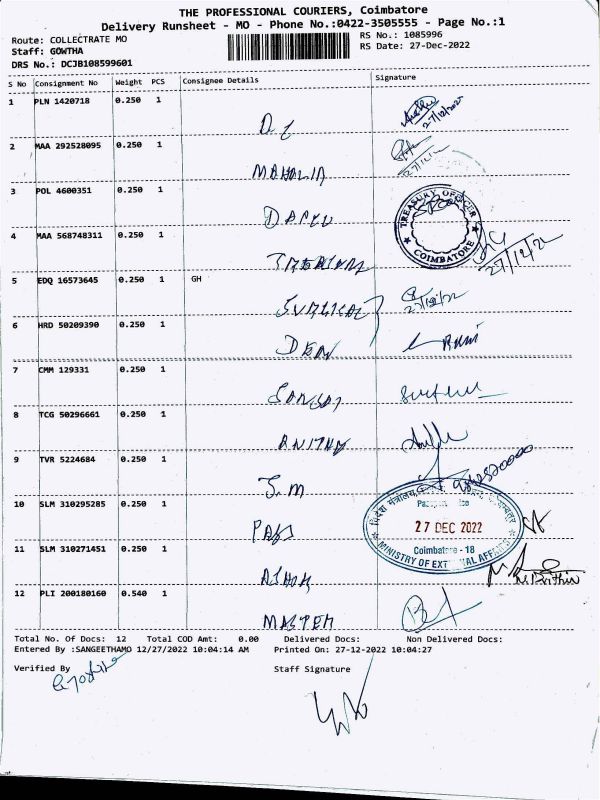 THE PROFESSIONAL COURIERS, Coimbatore
Delivery Runsheet - MO - Phone No.:0422-3505555 - Page No.:1
Route: COLLECTRATE MO RS No.: 1085996
Staff: GOWTHA RS Date: 27-Dec-2022
DRS No.: DCJB108599601
S No Consignment No Weight PCS Consignee Details Signature
1 PLN 1420718 0.250 1
27/12/2022
2 MAA 292528095 0.250 1
MAHALIA
3 POL 4600351 0.250 1
TREASURY OFFICER
COIMBATORE
4 MAA 568748311 0.250 1
27/12/22
5 EDQ 16573645 0.250 1 GH
SURGICAL
6 HRD 50209390 0.250 1
DEAN Rani
7 CMM 129331 0.250 1
8 TCG 50296661 0.250 1
ANITHA
9 TVR 5224684 0.250 1
J.M
10 SLM 310295285 0.250 1
27 DEC 2022
PASS
11 SLM 310271451 0.250 1
Coimbatore - 18
MINISTRY OF EXTERNAL AFFAIRS
ASHOK
12 PLI 200180160 0.540 1
MASTER
Total No. Of Docs: 12 Total COD Amt: 0.00 Delivered Docs: Non Delivered Docs:
Entered By :SANGEETHAMO 12/27/2022 10:04:14 AM Printed On: 27-12-2022 10:04:27
Verified By Staff Signature